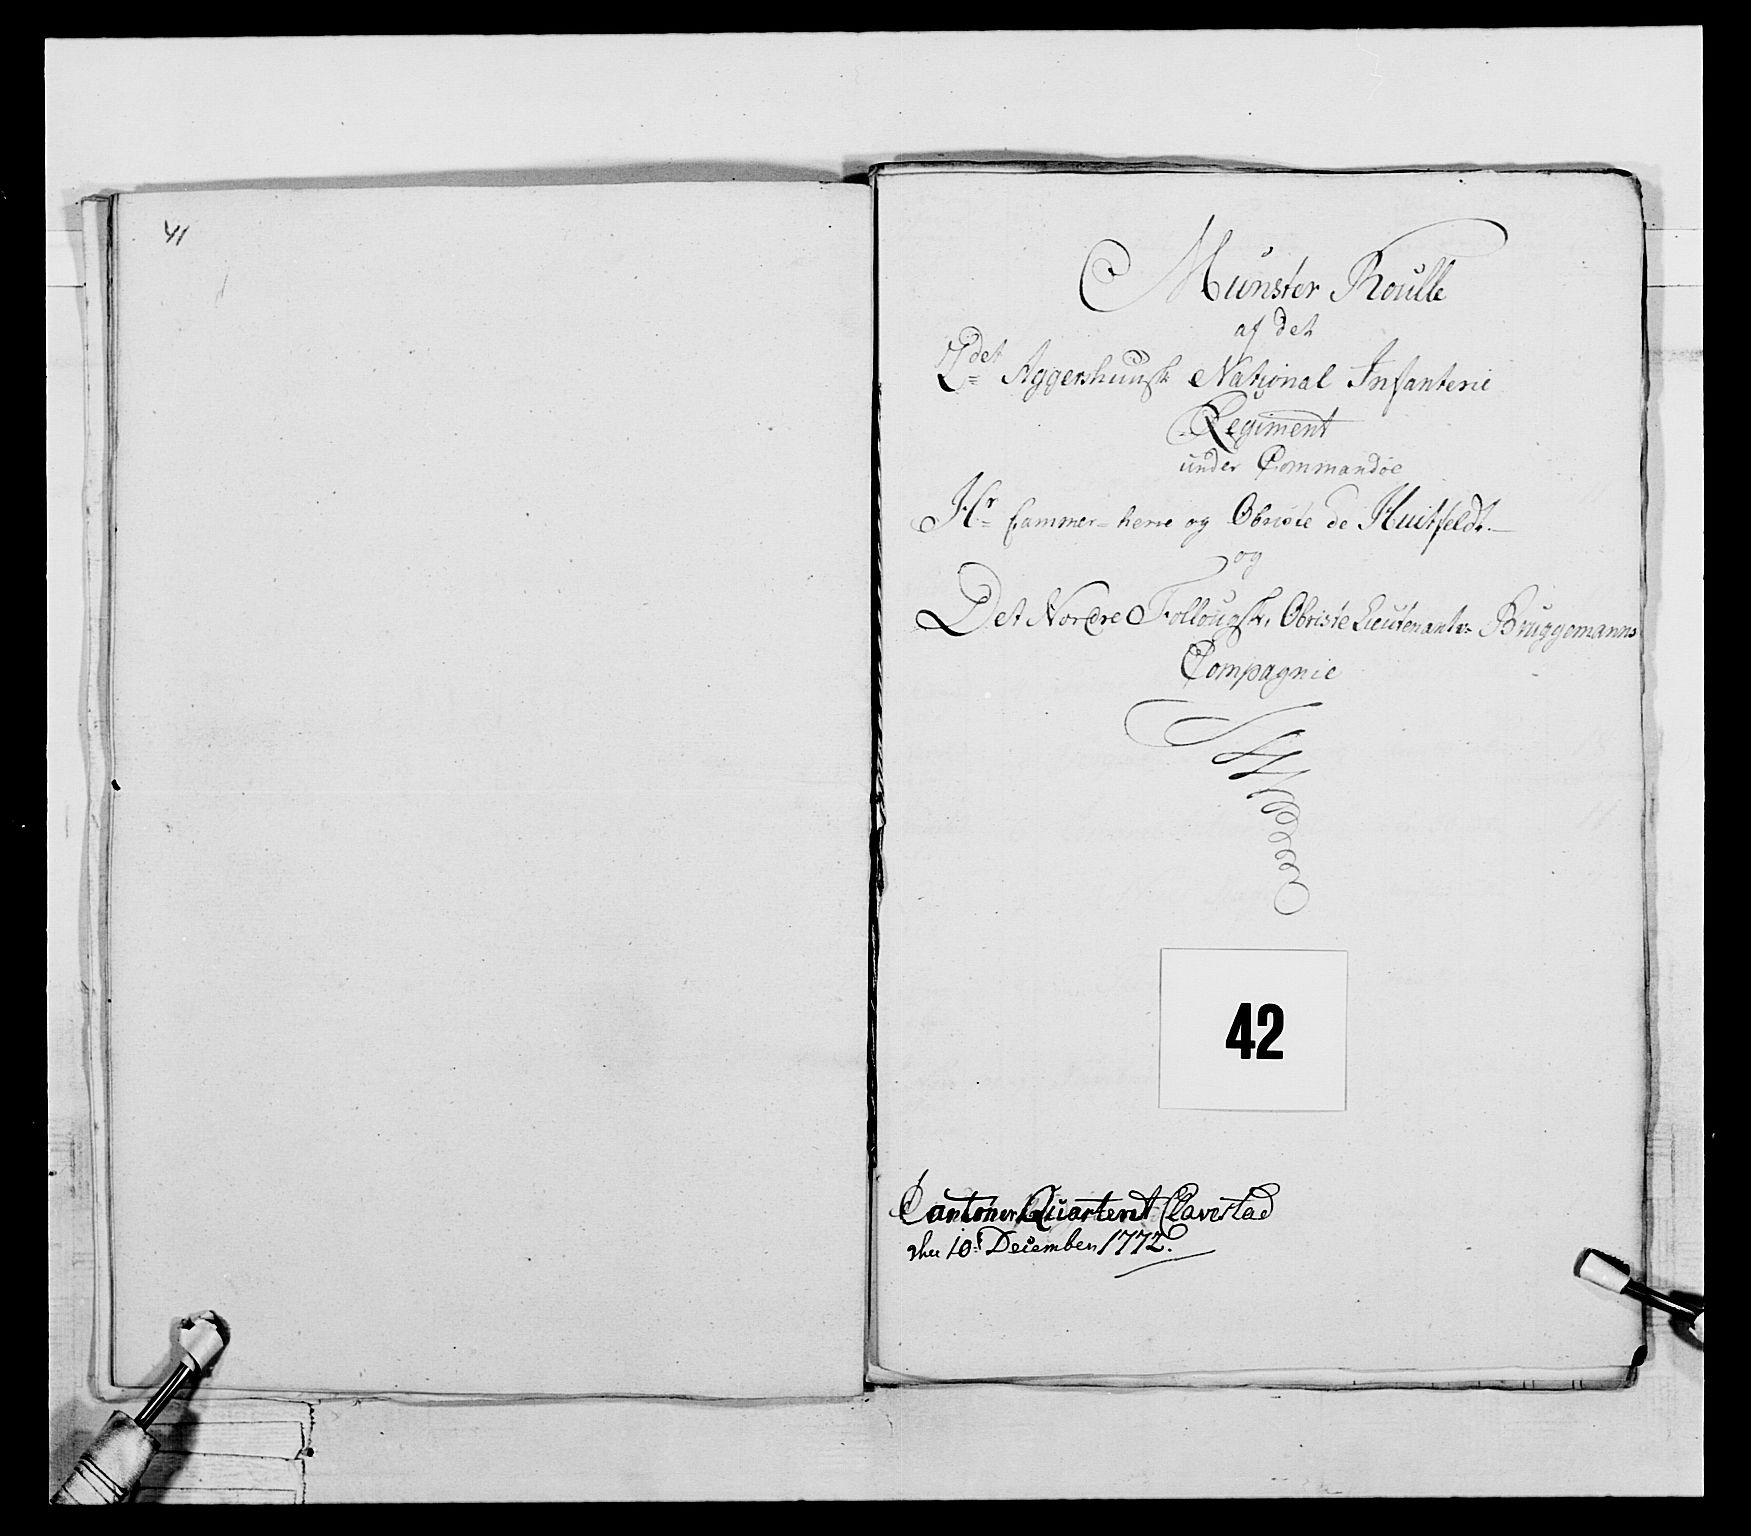 41
Munster Roulle
af det
2det Aggershuusk National Infanterie
Regiment
under Commandoe
Hr Cammer-herre og Obriste de Huitfeldt
og
Det Nordre Follougsk. Obriste Lieutenant Bruggemanns
Compagnie
42
Cantoner Quarteret Clavestad
10 December 1772.